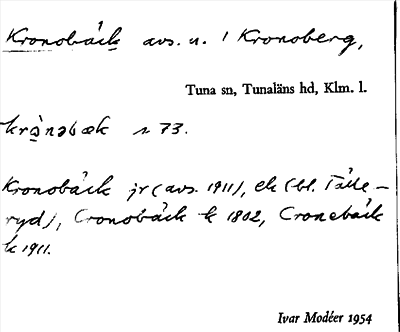 Kronobäck avs. u. / Kronoberg,
Tuna sn, Tunaläns hd, Klm. l.
krònobæk s. 73.
Kronobäck jr (avs. 1911), ek (bl. Tålle-
ryd), Cronobäck k 1802, Cronebäck
k 1911.
Ivar Modéer 1954